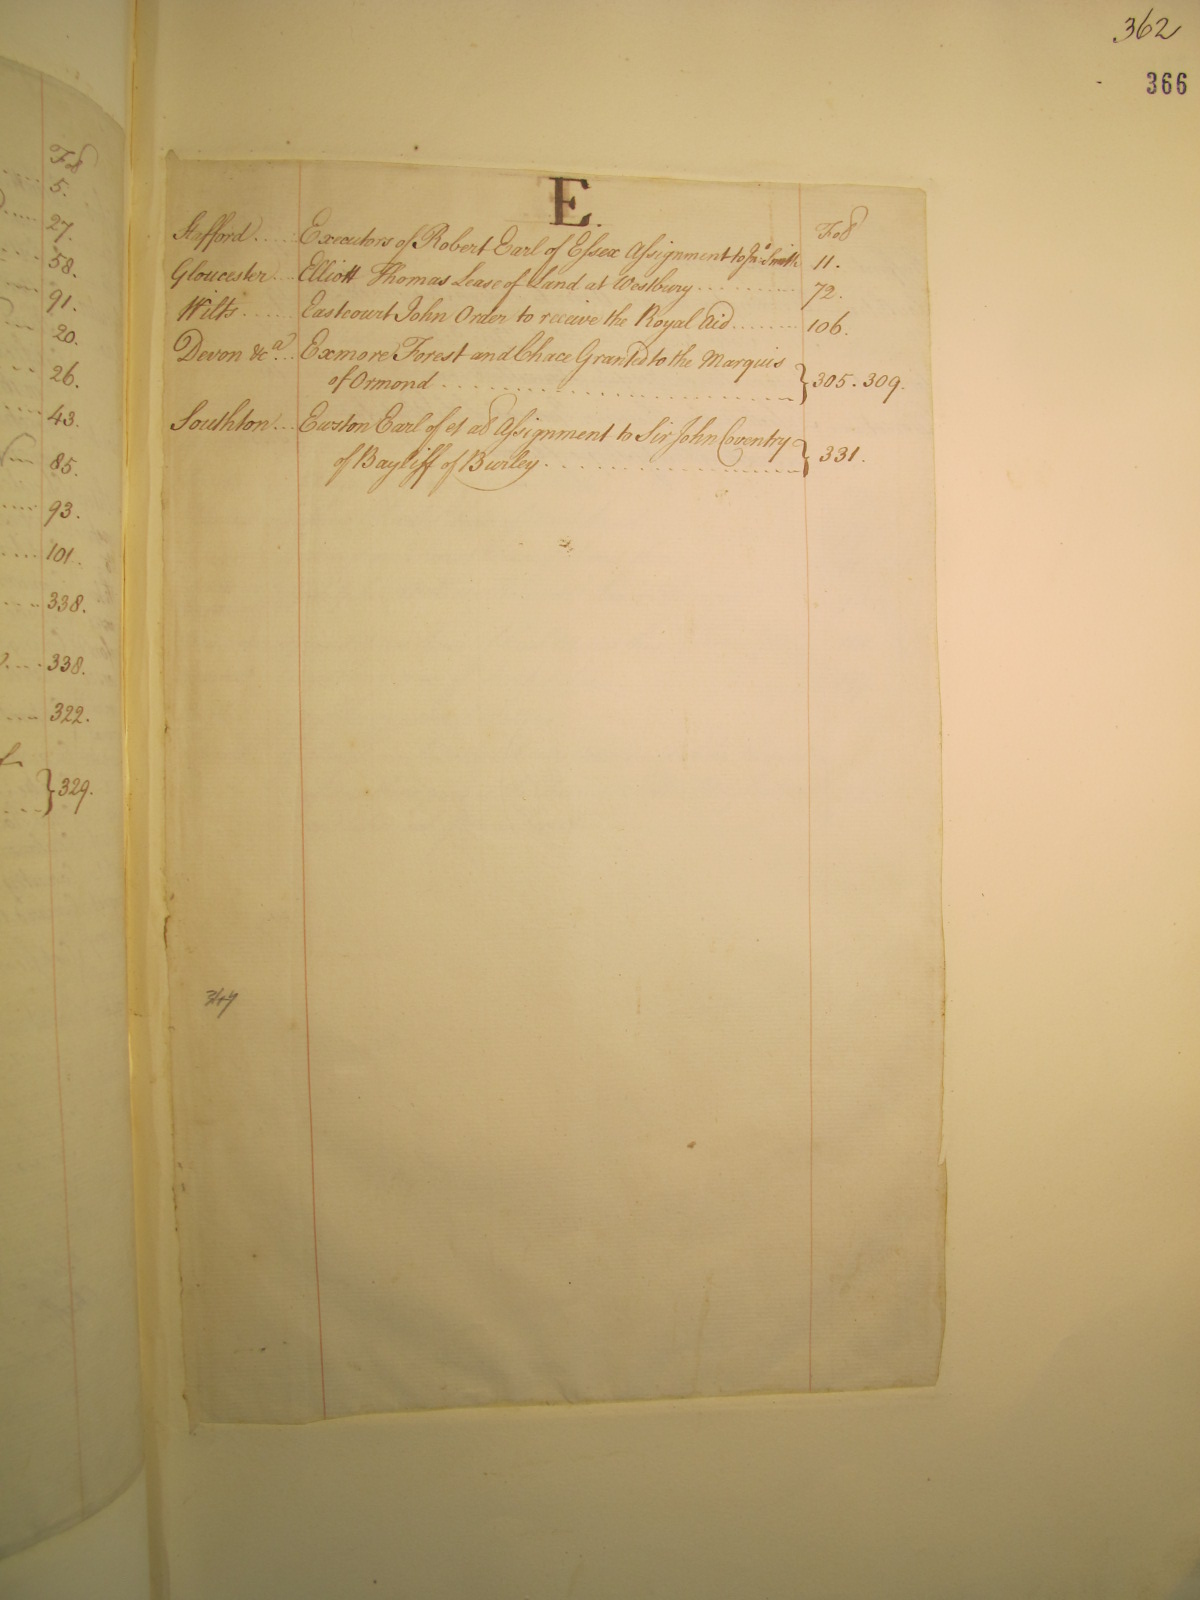 362
366
Fol
5.
27.
58.
91.
20.
26.
43.
85.
93.
101.
338.
338.
322.
} 329.
E.
Fol
Stafford.... Executors of Robert Earl of Essex Assignment to Jno. Smith 11.
Gloucester... Elliott Thomas Lease of Land at Westbury .......... 72.
Wilts...... Eastcourt John Order to receive the Royal Aid........ 106.
Devon &ca... Exmore Forest and Chace Granted to the Marquis
of Ormond .................... } 305. 309.
Southton... Euston Earl of et al Assignment to Sir John Coventry
of Bayliff of Burley ................ } 331.
347